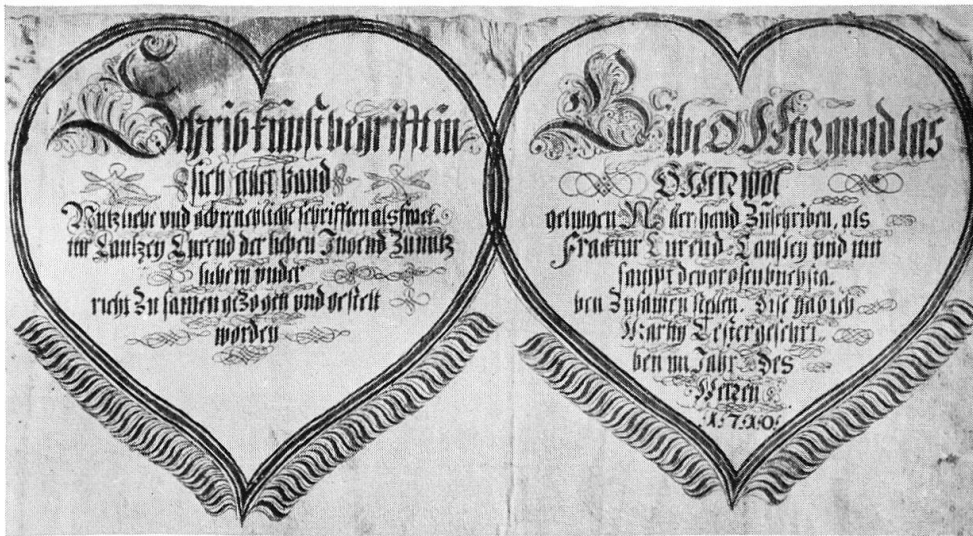 Schribkunst begrifft in
sich aller hand
Nutzliche und schrifften als fract
tur Cantzey Curend der lieben Jugend Zu nutz
lichem under
richt Zu samen geZogen und gestelt
worden
Gibe O Herr gnad das
O Herr wol
gelingen Aller hand Zuschriben, als
Fracktur Curend Cantzley und mit
sampt den grosen buchsta.
ben Zusamen stellen. Dise hab ich
geschri.
ben im Jahr Des
Herren
1710.